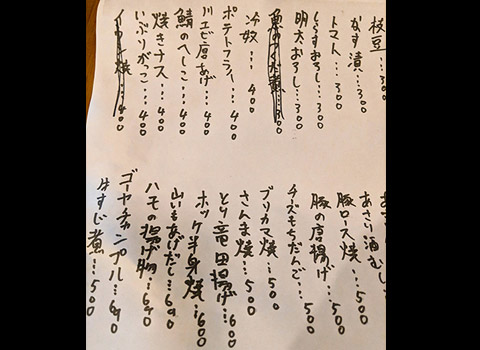 枝豆…300
なす漬…300
トマト…300
しらすおろし…300
明太おろし…300
魚のつくだ煮…300
冷奴…400
ポテトフライ…400
川エビ唐あげ…400
鯖のへしこ…400
焼きナス…400
いぶりがっこ…400
焼…400
あさり酒むし…
豚ロース焼…500
豚の唐揚げ…500
チーズもちだんご…500
ブリカマ焼…500
さんま焼…500
とり竜田揚げ…600
ホッケ半身焼…600
山いもあげだし…690
ハモの揚げ物…690
ゴーヤチャンプル…690
牛すじ煮…500